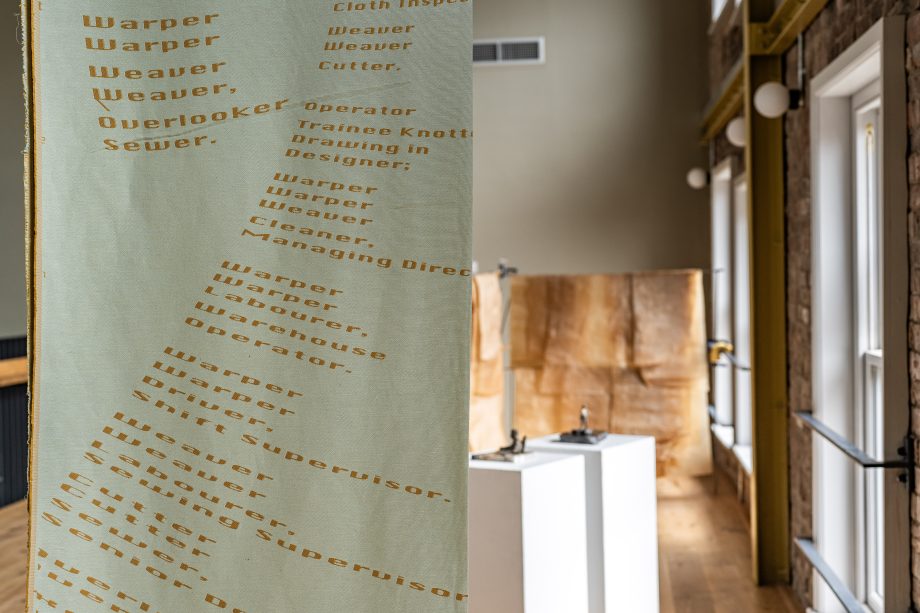 Warper
Warper
Weaver
Weaver,
Overlooker
Sewer.
Cloth Inspec
Weaver
Weaver
Cutter.
Operator
Trainee Knott
Drawing in
Designer;
Warper
Warper
Weaver
Cleaner.
Managing Direc
Warper
Warper
Labourer,
Warehouse
Operator.
Warper
Warper
Driver,
Shift Supervisor.
Weaver
Weaver
Labourer,
Sewing Supervisor
Cutter
Cutter
Sewer,
Senior,